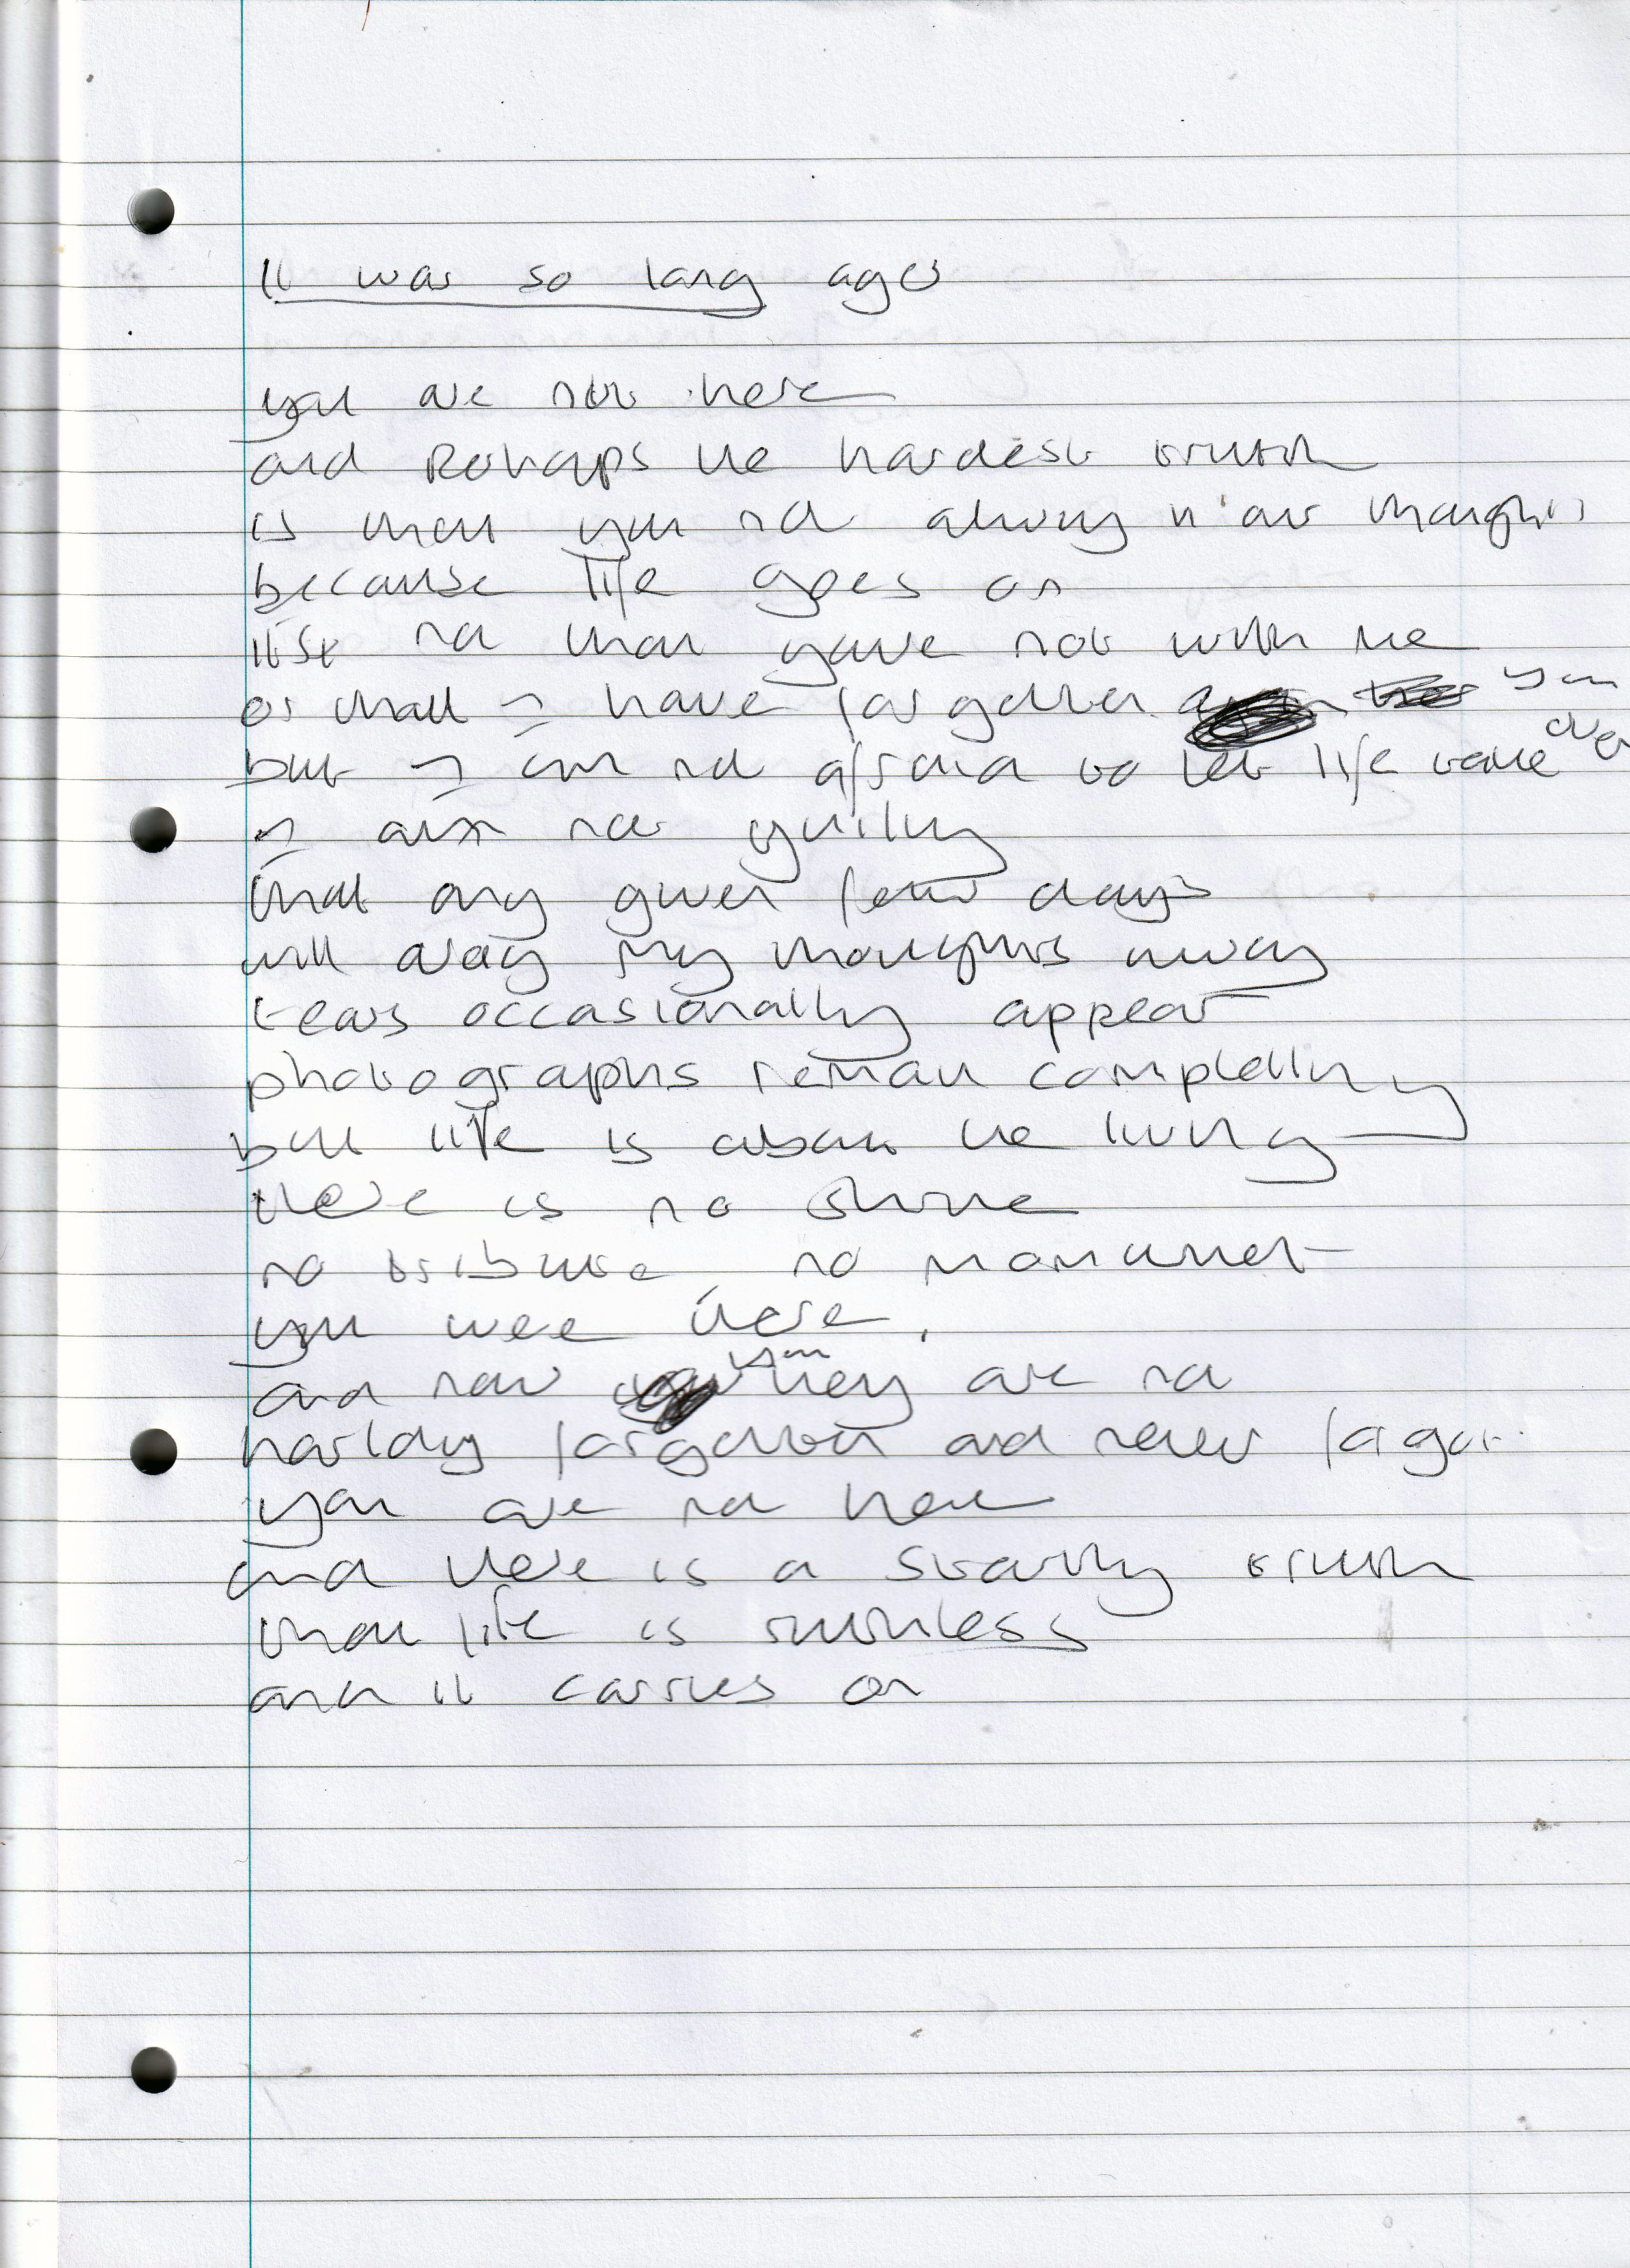 It was so long ago
you are not here
and perhaps the hardest truth
is that you not always in our thoughts
because life goes on
its not that you're not with me
or that I have forgotten you
but I am not afraid to let life take over
I am not guilty
that any given few days
will drag my thoughts away
tears occasionally appear
photographs remain compelling
but life is about the living
there is no shrine
no tribute, no monument
you were there,
and now you are not
hardly forgotten and never forgot
you are not here
and there is a startling truth
that life is ruthless
and it carries on